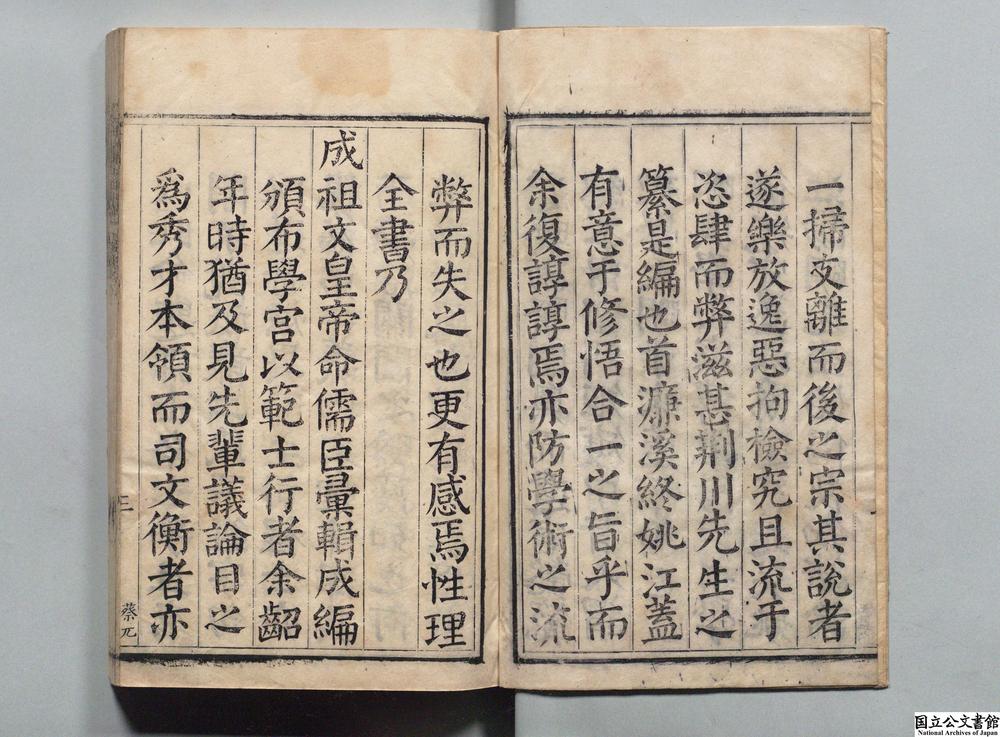 一掃支離而後之宗其說者
遂樂放逸惡拘檢究且流于
恣肆而弊滋甚荆川先生之
纂是編也首濂溪終姚江蓋
有意于修悟合一之旨乎而
余復諄諄焉亦防學術之流
弊而失之也更有感焉性理
全書乃
成祖文皇帝命儒臣彙輯成編
頒布學宮以範士行者余齠
年時猶及見先輩議論目之
爲秀才本領而司文衡者亦
三
蔡兀
国立公文書館
National Archives of Japan